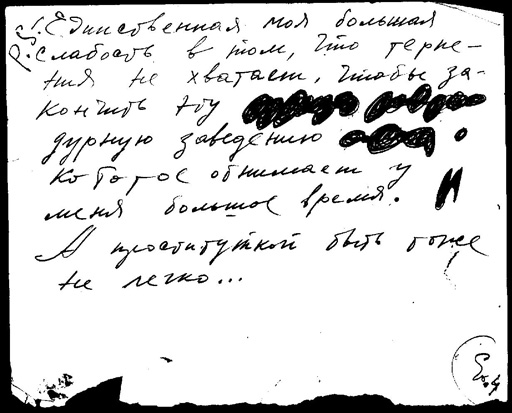 P.S. Единственная моя большая
слабость в том, что терпе-
ния не хватает, чтобы за-
кончить эту
дурную заведению о
которое обнимает у
меня большое время. и
А проституткой быть тоже
не легко...